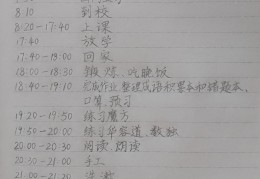 8:10 到校
8:20-17:40 上课
17:40 放学
17:40-19:00 回家
18:00-18:30 锻炼、吃晚饭
18:40-19:10 完成作业、整理成语积累本和错题本、
口算、预习
19:20-19:50 练习魔方
19:50-20:00 练习华容道、数独
20:00-20:30 阅读、朗读
20:30-21:00 手工
21:00-21: